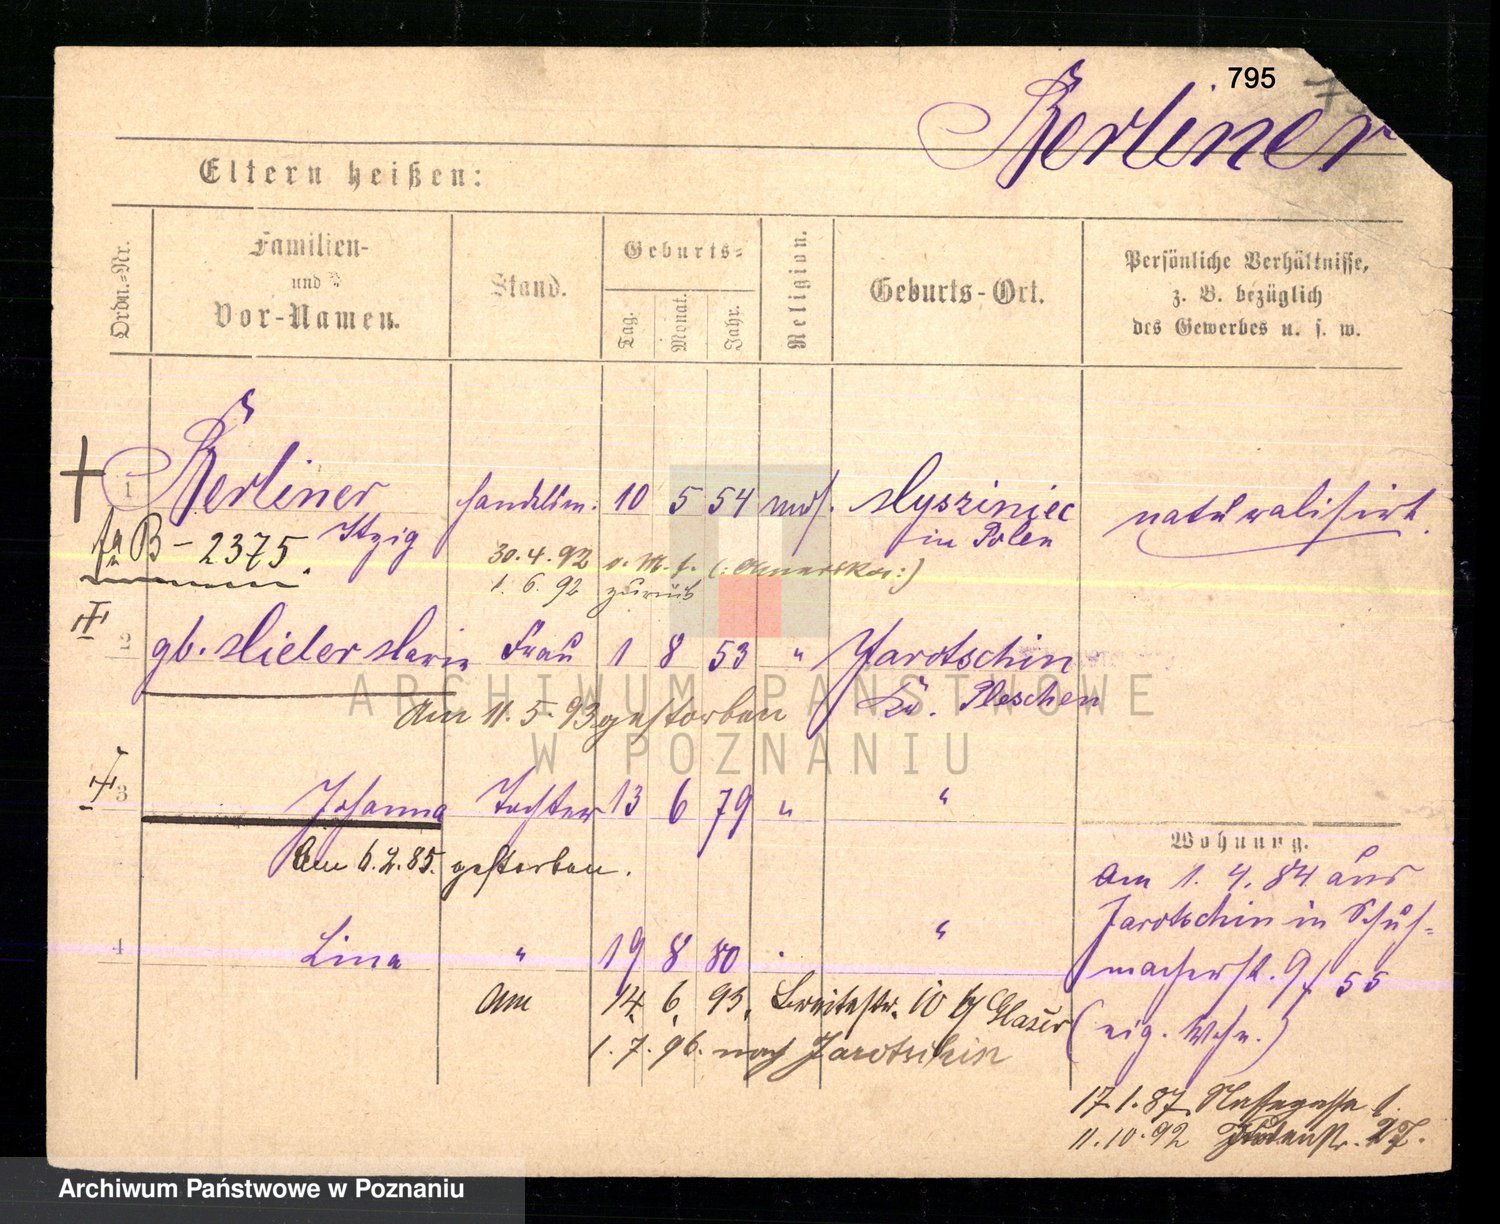 795
Berliner
Eltern heißen:
Ordn.-Nr.
Familien-
und
Vor-Namen.
Stand.
Geburts-
Tag.
Monat.
Jahr.
Religion.
Geburts-Ort.
Persönliche Verhältnisse,
z. B. bezüglich
des Gewerbes u. s. w.
1 Berliner Handelsm. 10 5 54 mos. Mysziniec naturalisirt.
Itzig in Polen
B - 2375.
30.4.92
1. 6. 92 zurück
2 gb. Mieler Marie Frau 1 8 53 " Jarotschin
Kr. Pleschen
Am 11. 5. 93 gestorben
3 Johanna Tochter 13 6 79 " "
Am 6.2.85. gestorben.
4 Lina " 19 8 80 "
Am 14. 6. 93. Breitestr. 10 b/ Glaser
1. 7. 96. nach Jarotschin
Wohnung.
Am 1. 4. 84 aus
Jarotschin in Schuh-
macherstr. 9 / 55
(eig. Wohn.)
17.1.87 Nassegasse 1.
11.10.92 Judenstr. 27.
ARCHIWUM PAŃSTWOWE
W POZNANIU
Archiwum Państwowe w Poznaniu